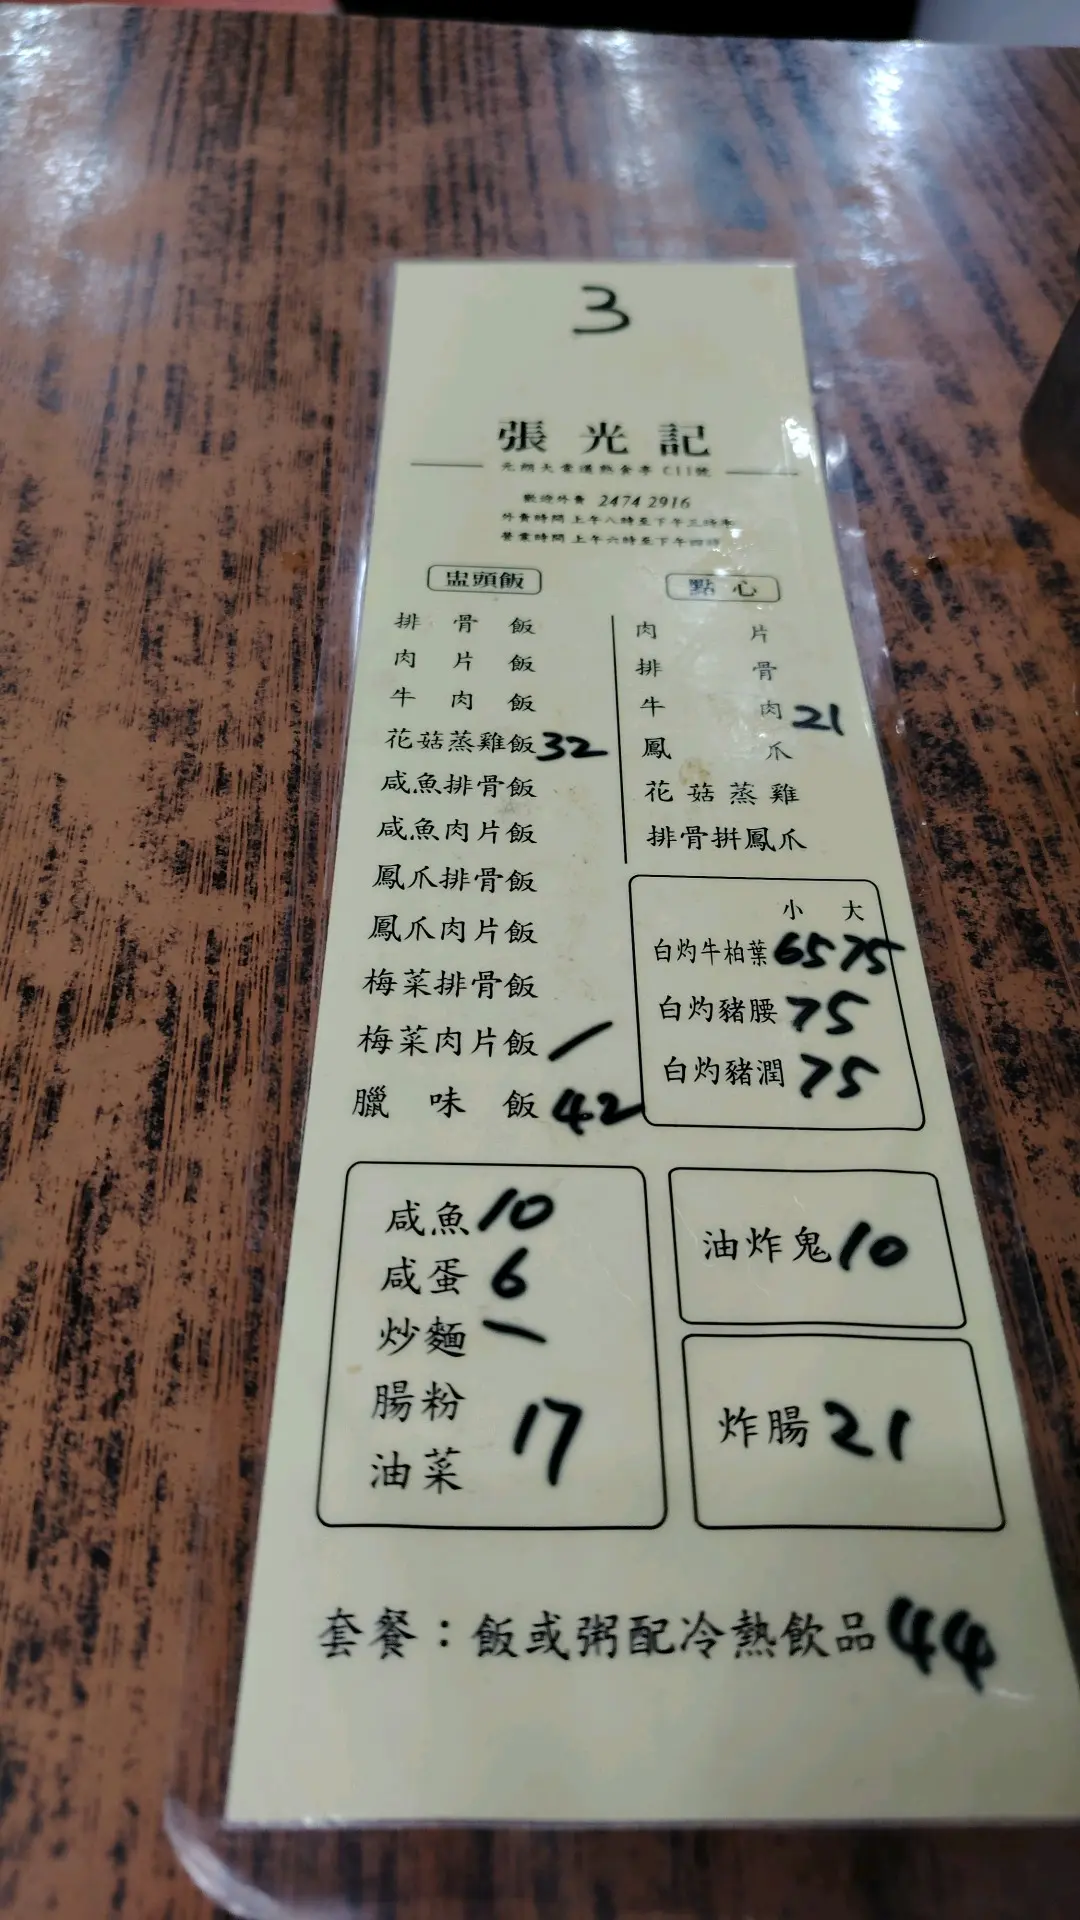 3
張光記
元朗大棠道熟食亭 C11號
歡迎外賣 2474 2916
外賣時間 上午八時至下午三時半
營業時間 上午六時至下午四時
盅頭飯
排骨飯
肉片飯
牛肉飯
花菇蒸雞飯 32
咸魚排骨飯
咸魚肉片飯
鳳爪排骨飯
鳳爪肉片飯
梅菜排骨飯
梅菜肉片飯 /
臘味飯 42
點心
肉片
排骨
牛肉 21
鳳爪
花菇蒸雞
排骨拼鳳爪
小 大
白灼牛柏葉 65 75
白灼豬腰 75
白灼豬潤 75
咸魚 10
咸蛋 6
炒麵 一
腸粉
17
油菜
油炸鬼 10
炸腸 21
套餐：飯或粥配冷熱飲品 44